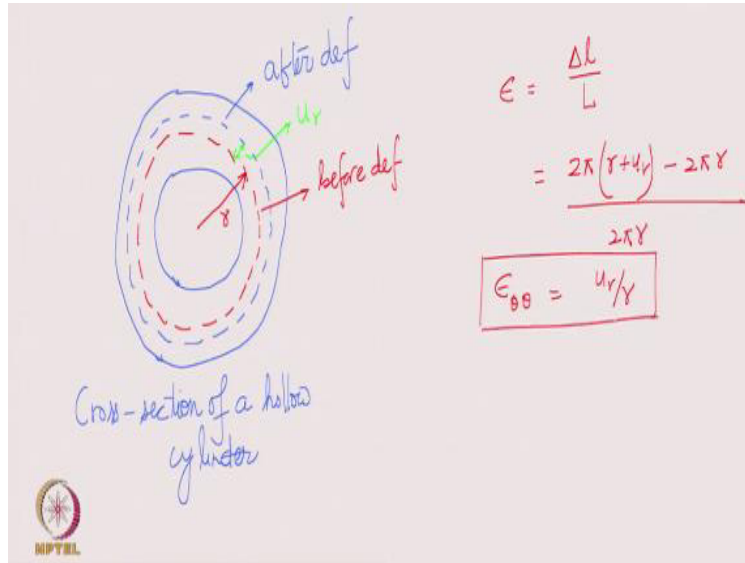 after def
u_r
before def
r
Cross-section of a hollow
cylinder
ϵ = Δl / L
= 2π(r+u_r) - 2πr / 2πr
ϵ_θθ = u_r/r
NPTEL